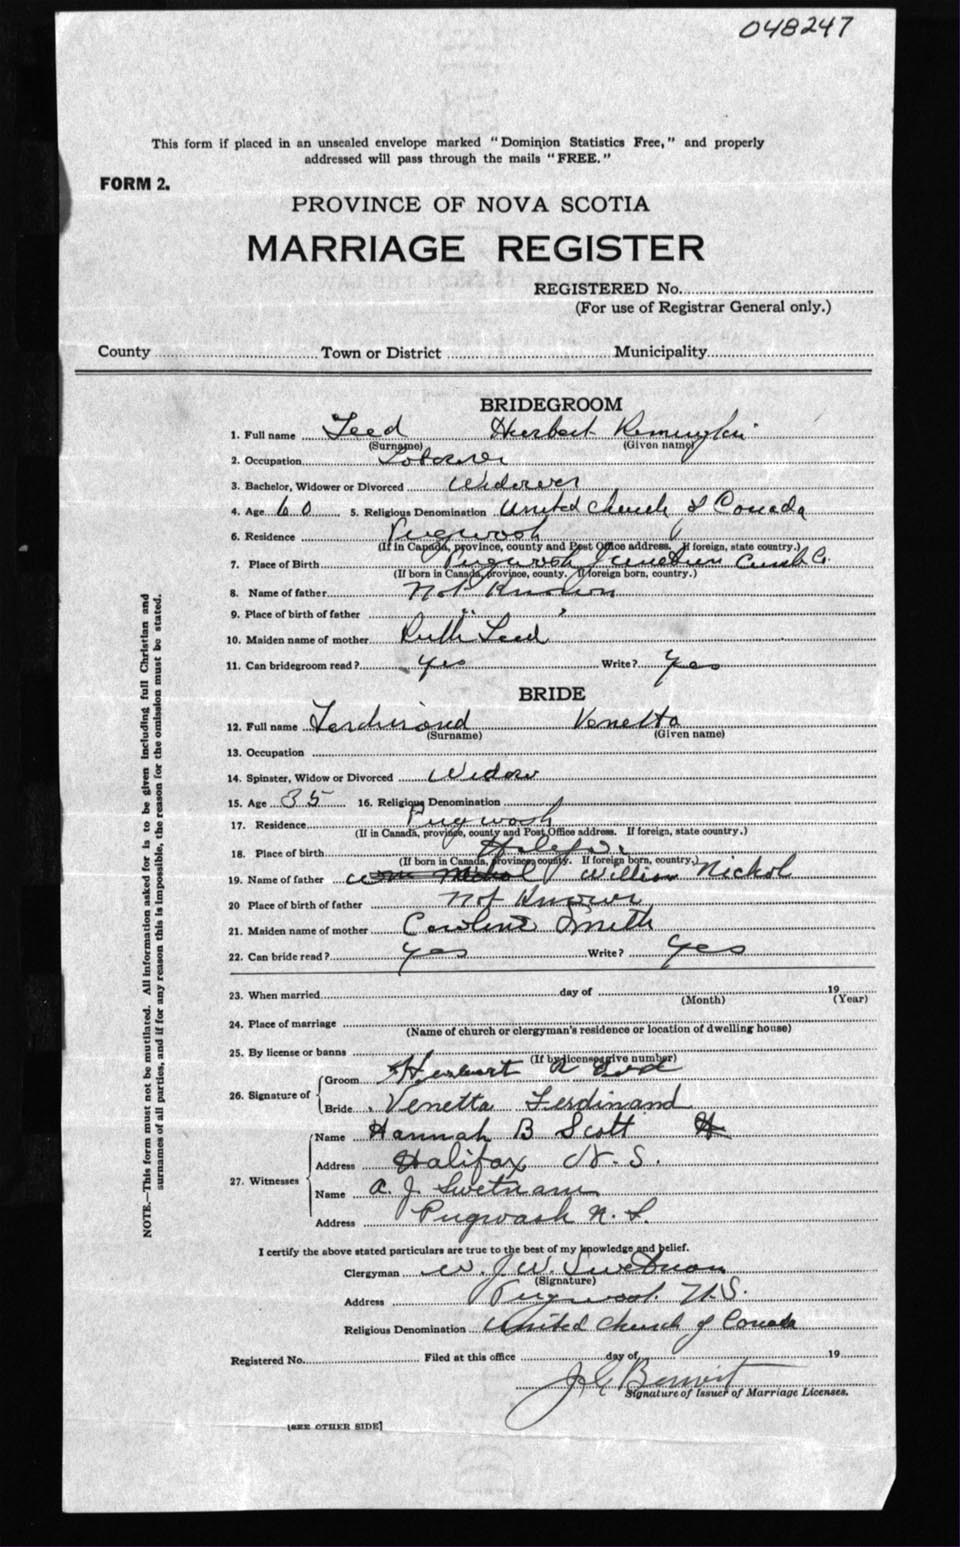 048247
This form if placed in an unsealed envelope marked "Dominion Statistics Free," and properly
addressed will pass through the mails "FREE."
FORM 2.
PROVINCE OF NOVA SCOTIA
MARRIAGE REGISTER
REGISTERED No.
(For use of Registrar General only.)
County Town or District Municipality
BRIDEGROOM
1. Full name Teed Herbert
(Surname) (Given name)
2. Occupation
3. Bachelor, Widower or Divorced Widower
4. Age 60 5. Religious Denomination United Church of Canada
6. Residence Pugwash
(If in Canada, province, county and Post Office address. If foreign, state country.)
7. Place of Birth Pugwash Junction Cumb Co.
(If born in Canada, province, county. If foreign born, country.)
8. Name of father Not Known
9. Place of birth of father " "
10. Maiden name of mother Ruth Teed
11. Can bridegroom read? Yes Write? Yes
BRIDE
12. Full name Ferdinand Venetta
(Surname) (Given name)
13. Occupation
14. Spinster, Widow or Divorced Widow
15. Age 35 16. Religious Denomination
17. Residence Pugwash
(If in Canada, province, county and Post Office address. If foreign, state country.)
18. Place of birth Halifax
(If born in Canada, province, county. If foreign born, country.)
19. Name of father William Nickol
20 Place of birth of father Not Known
21. Maiden name of mother Smith
22. Can bride read? Yes Write? Yes
23. When married day of 19
(Month) (Year)
24. Place of marriage
(Name of church or clergyman's residence or location of dwelling house)
25. By license or banns
(If by license give number)
26. Signature of Groom Herbert R Teed
Bride Venetta Ferdinand
27. Witnesses Name Hannah B Scott
Address Halifax N. S.
Name A. J. Swetnam
Address Pugwash N. S.
I certify the above stated particulars are true to the best of my knowledge and belief.
Clergyman W. J. W. Swetnam
(Signature)
Address Pugwash N.S.
Religious Denomination United Church of Canada
Registered No. Filed at this office day of 19
Signature of Issuer of Marriage Licenses.
[SEE OTHER SIDE]
NOTE.—This form must not be mutilated. All information asked for is to be given including full Christian and
surnames of all parties, and if for any reason this is impossible, the reason for the omission must be stated.